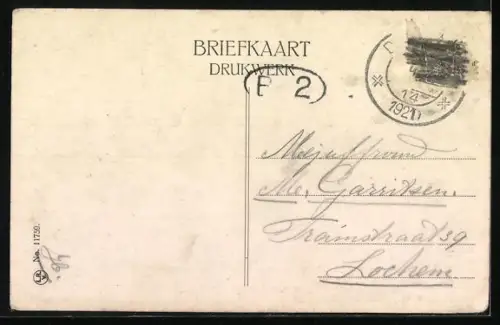 BRIEFKAART
DRUKWERK
B 2
D
14
1920
Mejuffrouw
Me. Garritsen.
Tramstraat 39
Lochem
No. 11752.